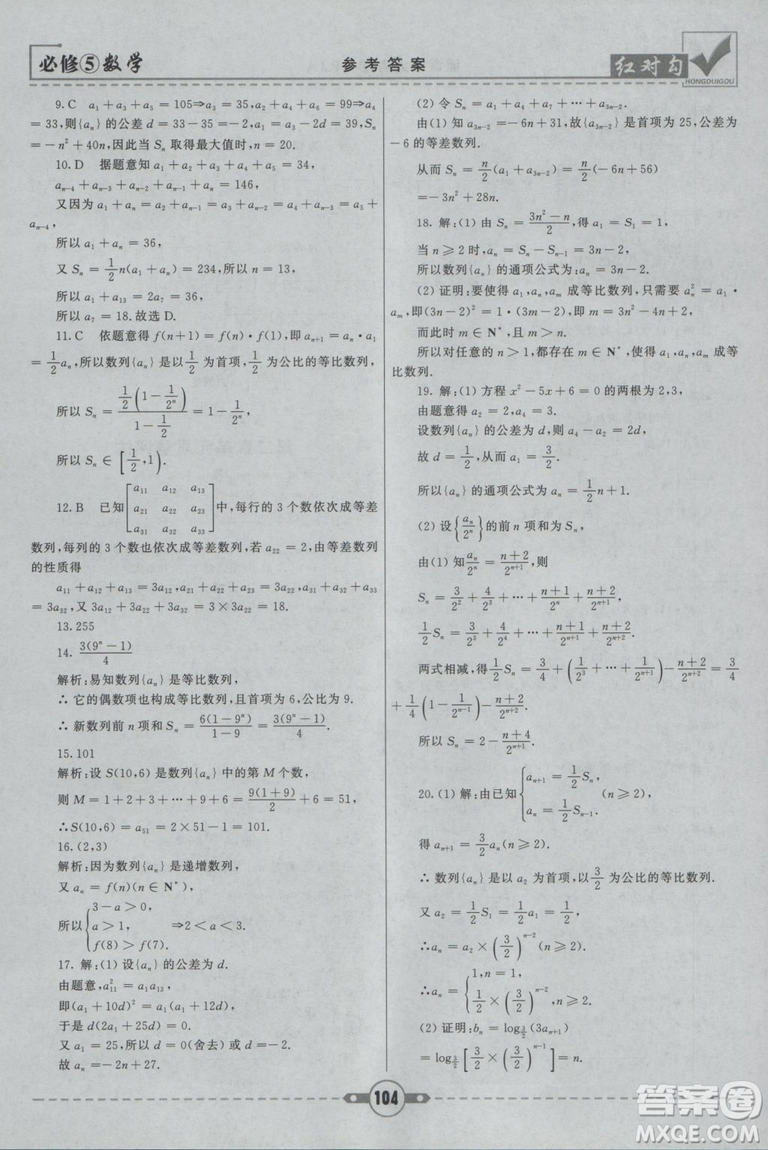 必修⑤数学
参考答案
红对勾
HONGDUIGOU
9.C a₁+a₃+a₅=105⇒a₃=35,a₂+a₄+a₆=99⇒a₄
=33,则{aₙ}的公差d=33-35=-2,a₁=a₃-2d=39,Sₙ
=-n²+40n,因此当Sₙ取得最大值时,n=20.
10.D 据题意知a₁+a₂+a₃+a₄+a₅=34,
aₙ₋₄+aₙ₋₃+aₙ₋₂+aₙ₋₁+aₙ=146,
又因为a₁+aₙ=a₂+aₙ₋₁=a₃+aₙ₋₂=a₄+aₙ₋₃=a₅+
aₙ₋₄,
所以a₁+aₙ=36,
又Sₙ=1/2 n(a₁+aₙ)=234,所以n=13,
所以a₁+a₁₃=2a₇=36,
所以a₇=18.故选D.
11.C 依题意得f(n+1)=f(n)·f(1),即aₙ₊₁=aₙ·a₁
=1/2 aₙ,所以数列{aₙ}是以1/2为首项,1/2为公比的等比数列,
所以Sₙ=[1/2(1-1/2ⁿ)]/(1-1/2)=1-1/2ⁿ,
所以Sₙ∈[1/2,1).
12.B 已知[a₁₁ a₁₂ a₁₃; a₂₁ a₂₂ a₂₃; a₃₁ a₃₂ a₃₃]中,每行的3个数依次成等差
数列,每列的3个数也依次成等差数列,若a₂₂=2,由等差数列
的性质得
a₁₁+a₁₂+a₁₃=3a₁₂,a₂₁+a₂₂+a₂₃=3a₂₂,a₃₁+a₃₂+a₃₃
=3a₃₂,又3a₁₂+3a₂₂+3a₃₂=3×3a₂₂=18.
13.255
14. 3(9ⁿ-1)/4
解析:易知数列{aₙ}是等比数列,
∴它的偶数项也构成等比数列,且首项为6,公比为9.
∴新数列前n项和Sₙ=6(1-9ⁿ)/(1-9)=3(9ⁿ-1)/4.
15.101
解析:设S(10,6)是数列{aₙ}中的第M个数,
则M=1+2+3+⋯+9+6=9(1+9)/2+6=51,
∴S(10,6)=a₅₁=2×51-1=101.
16.(2,3)
解析:因为数列{aₙ}是递增数列,
又aₙ=f(n)(n∈N*),
所以{3-a>0, a>1, f(8)>f(7) ⇒2<a<3.
17.解:(1)设{aₙ}的公差为d.
由题意,a₁₁²=a₁a₁₃,
即(a₁+10d)²=a₁(a₁+12d),
于是d(2a₁+25d)=0.
又a₁=25,所以d=0(舍去)或d=-2.
故aₙ=-2n+27.
(2)令Sₙ=a₁+a₄+a₇+⋯+a₃ₙ₋₂.
由(1)知a₃ₙ₋₂=-6n+31,故{a₃ₙ₋₂}是首项为25,公差为
-6的等差数列.
从而Sₙ=n/2(a₁+a₃ₙ₋₂)=n/2(-6n+56)
=-3n²+28n.
18.解:(1)由Sₙ=(3n²-n)/2,得a₁=S₁=1,
当n≥2时,aₙ=Sₙ-Sₙ₋₁=3n-2,
所以数列{aₙ}的通项公式为:aₙ=3n-2.
(2)证明:要使得a₁,aₙ,aₘ成等比数列,只需要aₙ²=a₁·
aₘ,即(3n-2)²=1·(3m-2),即m=3n²-4n+2,
而此时m∈N*,且m>n.
所以对任意的n>1,都存在m∈N*,使得a₁,aₙ,aₘ成等
比数列.
19.解:(1)方程x²-5x+6=0的两根为2,3,
由题意得a₂=2,a₄=3.
设数列{aₙ}的公差为d,则a₄-a₂=2d,
故d=1/2,从而a₁=3/2.
所以{aₙ}的通项公式为aₙ=1/2 n+1.
(2)设{aₙ/2ⁿ}的前n项和为Sₙ,
由(1)知aₙ/2ⁿ=(n+2)/2ⁿ⁺¹,则
Sₙ=3/2²+4/2³+⋯+(n+1)/2ⁿ+(n+2)/2ⁿ⁺¹,
1/2 Sₙ=3/2³+4/2⁴+⋯+(n+1)/2ⁿ⁺¹+(n+2)/2ⁿ⁺².
两式相减,得1/2 Sₙ=3/4+(1/2³+⋯+1/2ⁿ⁺¹)-(n+2)/2ⁿ⁺²=3/4
+1/4(1-1/2ⁿ⁻¹)-(n+2)/2ⁿ⁺².
所以Sₙ=2-(n+4)/2ⁿ⁺¹.
20.(1)解:由已知{aₙ₊₁=1/2 Sₙ, aₙ=1/2 Sₙ₋₁. (n≥2),
得aₙ₊₁=3/2 aₙ(n≥2).
∴数列{aₙ}是以a₂为首项,以3/2为公比的等比数列.
又a₂=1/2 S₁=1/2 a₁=1/2,
∴aₙ=a₂×(3/2)ⁿ⁻²(n≥2).
∴aₙ={1,n=1, 1/2×(3/2)ⁿ⁻²,n≥2.
(2)证明:bₙ=log_{3/2}(3aₙ₊₁)
=log_{3/2}[3/2×(3/2)ⁿ⁻¹]=n.
104
答案圈
MXQE.COM